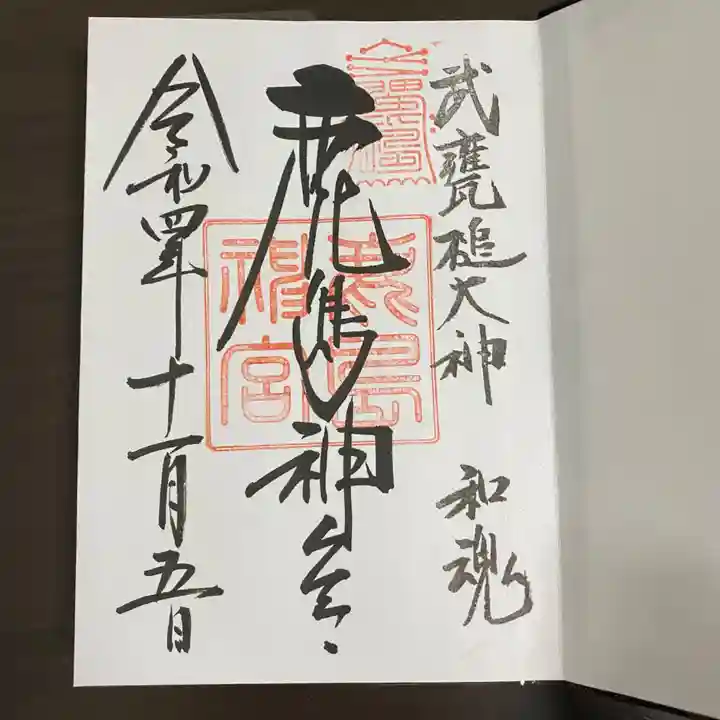 武甕槌大神 和魂
鹿島神宮
鹿島
神宮
令和四年十一月五日